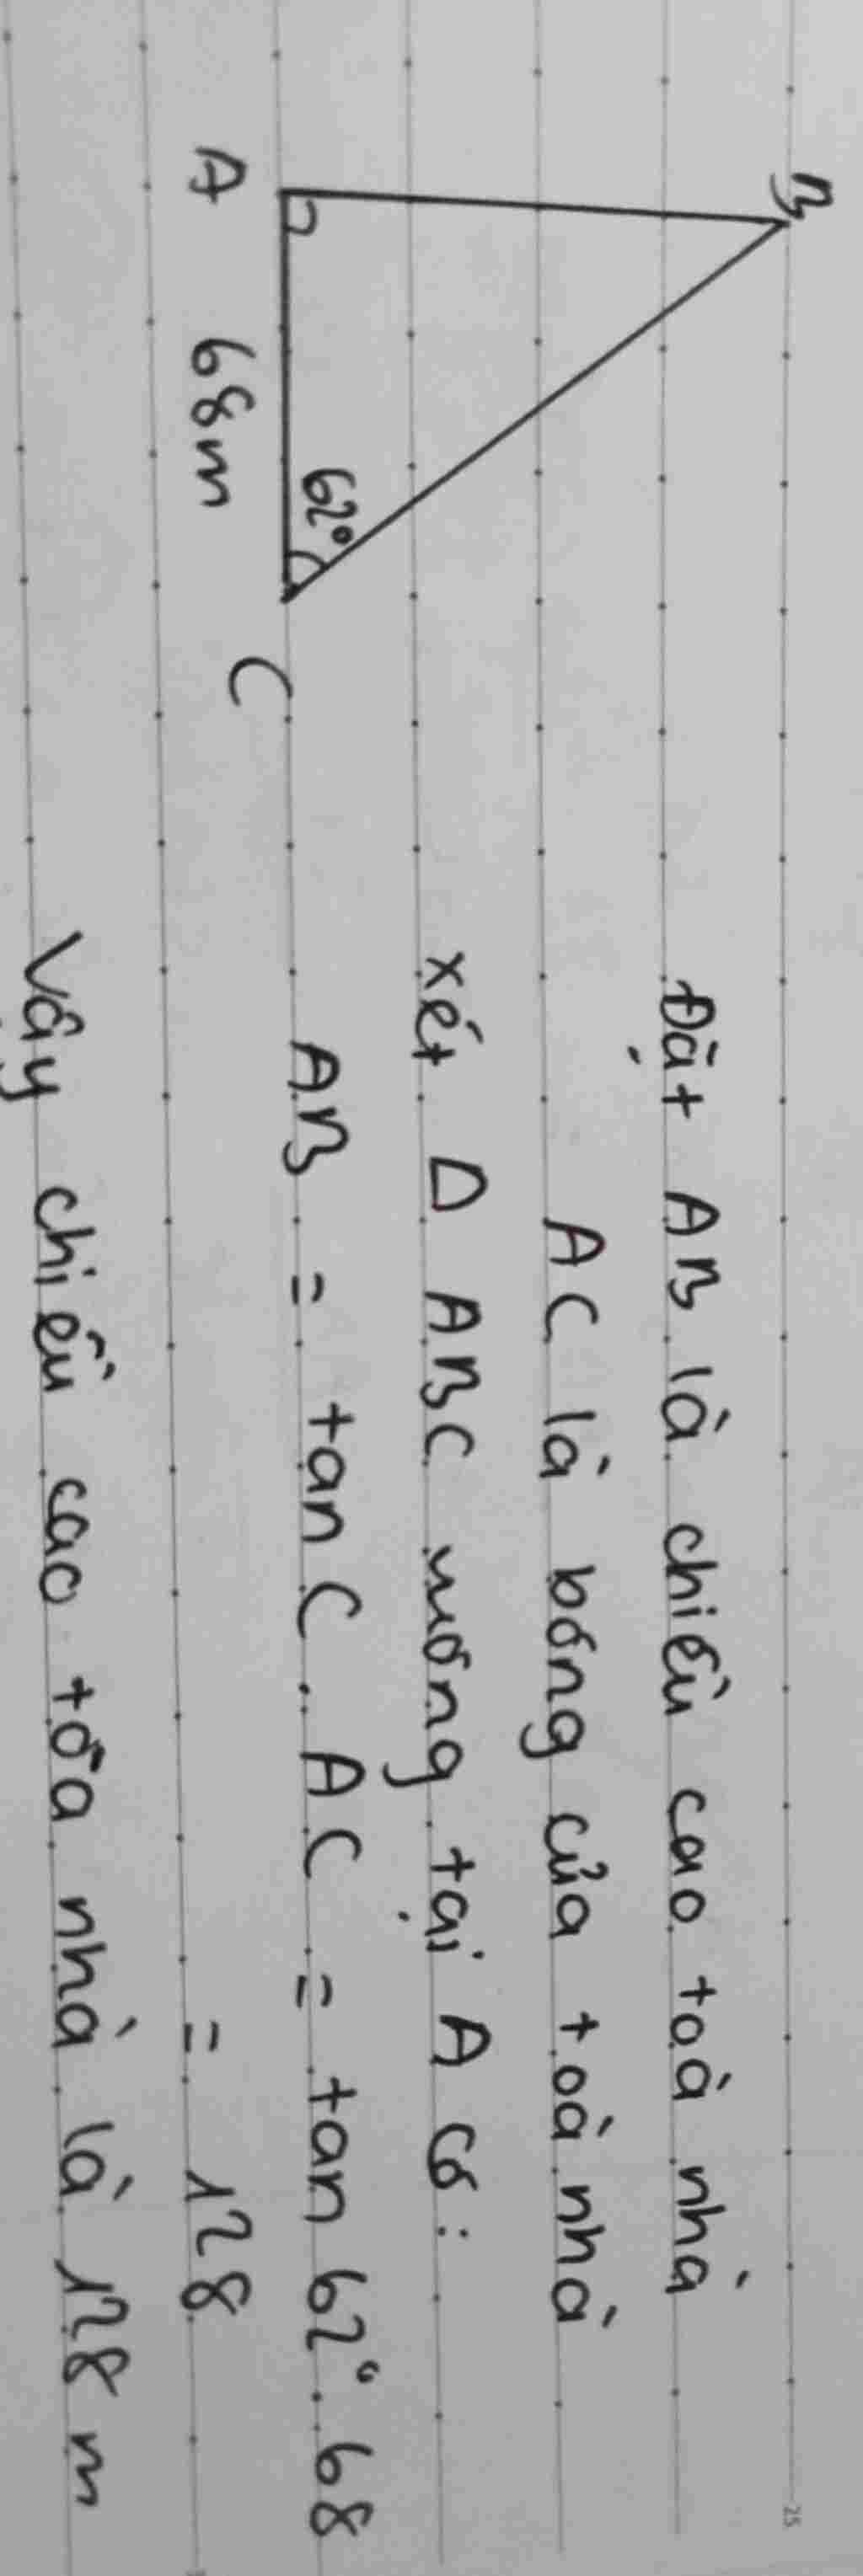 B
62°
A 68m C
Đặt AB là chiều cao toà nhà
AC là bóng của toà nhà
xét Δ ABC vuông tại A có:
AB = tan C . AC = tan 62° . 68
= 128
Vậy chiều cao tòa nhà là 128 m
25